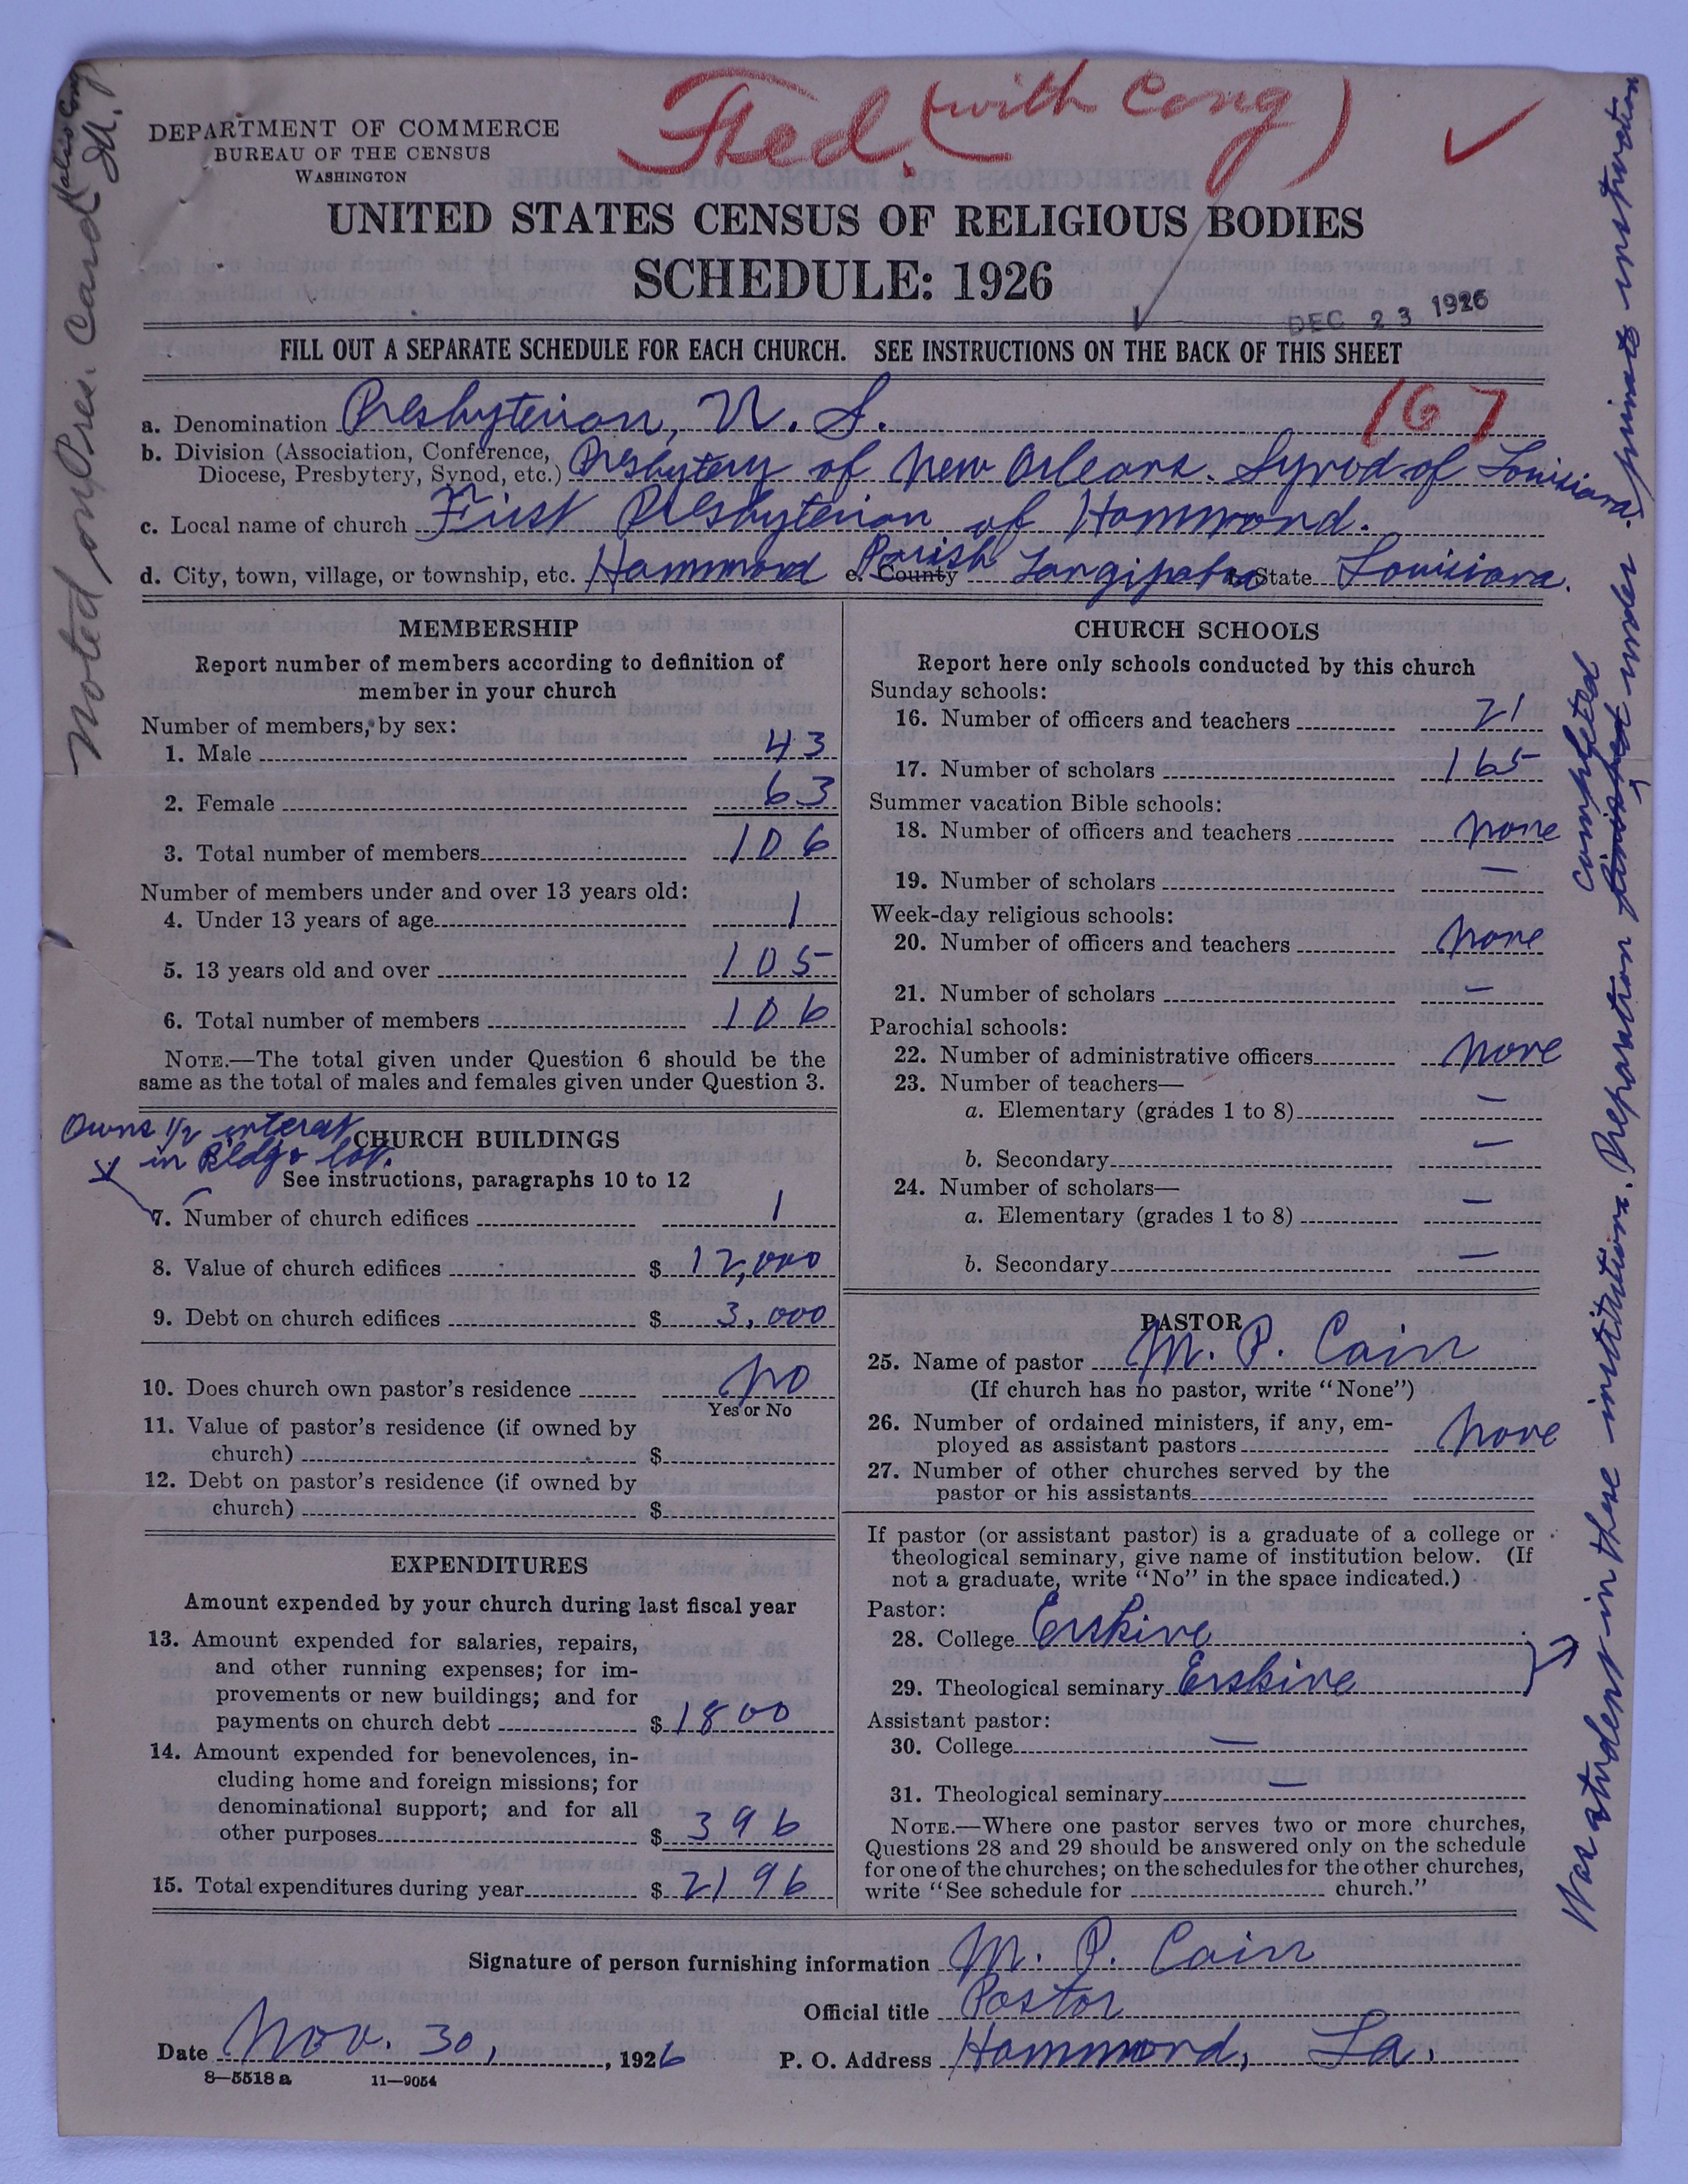 Fed. (with Cong)
DEPARTMENT OF COMMERCE
BUREAU OF THE CENSUS
WASHINGTON
UNITED STATES CENSUS OF RELIGIOUS BODIES
SCHEDULE: 1926
DEC 23 1926
FILL OUT A SEPARATE SCHEDULE FOR EACH CHURCH. SEE INSTRUCTIONS ON THE BACK OF THIS SHEET
167
a. Denomination Presbyterian, U. S.
b. Division (Association, Conference,
Diocese, Presbytery, Synod, etc.) Presbytery of New Orleans. Synod of Louisiana.
c. Local name of church First Presbyterian of Hammond.
d. City, town, village, or township, etc. Hammond e. County Parish Tangipahoa State Louisiana.
MEMBERSHIP
Report number of members according to definition of
member in your church
Number of members, by sex:
1. Male 43
2. Female 63
3. Total number of members 106
Number of members under and over 13 years old:
4. Under 13 years of age 1
5. 13 years old and over 105
6. Total number of members 106
NOTE.—The total given under Question 6 should be the
same as the total of males and females given under Question 3.
Owns 1/2 interest
in Bldg & lot.
CHURCH BUILDINGS
See instructions, paragraphs 10 to 12
7. Number of church edifices 1
8. Value of church edifices $ 12,000
9. Debt on church edifices $ 3,000
10. Does church own pastor's residence No
Yes or No
11. Value of pastor's residence (if owned by
church) $
12. Debt on pastor's residence (if owned by
church) $
EXPENDITURES
Amount expended by your church during last fiscal year
13. Amount expended for salaries, repairs,
and other running expenses; for im-
provements or new buildings; and for
payments on church debt $ 1800
14. Amount expended for benevolences, in-
cluding home and foreign missions; for
denominational support; and for all
other purposes $ 396
15. Total expenditures during year $ 2196
CHURCH SCHOOLS
Report here only schools conducted by this church
Sunday schools:
16. Number of officers and teachers 21
17. Number of scholars 165
Summer vacation Bible schools:
18. Number of officers and teachers none
19. Number of scholars —
Week-day religious schools:
20. Number of officers and teachers none
21. Number of scholars —
Parochial schools:
22. Number of administrative officers none
23. Number of teachers—
a. Elementary (grades 1 to 8) —
b. Secondary —
24. Number of scholars— —
a. Elementary (grades 1 to 8)
b. Secondary —
PASTOR
25. Name of pastor M. P. Cain
(If church has no pastor, write "None")
26. Number of ordained ministers, if any, em-
ployed as assistant pastors none
27. Number of other churches served by the
pastor or his assistants
If pastor (or assistant pastor) is a graduate of a college or
theological seminary, give name of institution below. (If
not a graduate, write "No" in the space indicated.)
Pastor:
28. College Erskine
29. Theological seminary Erskine
Assistant pastor:
30. College —
31. Theological seminary —
NOTE.—Where one pastor serves two or more churches,
Questions 28 and 29 should be answered only on the schedule
for one of the churches; on the schedules for the other churches,
write "See schedule for church."
Signature of person furnishing information M. P. Cain
Official title Pastor
Date Nov. 30, 1926 P. O. Address Hammond, La.
8—5518 a 11—9054
Noted on Pres. Card
Was student in these institutions. Preparation finished completed under private instruction